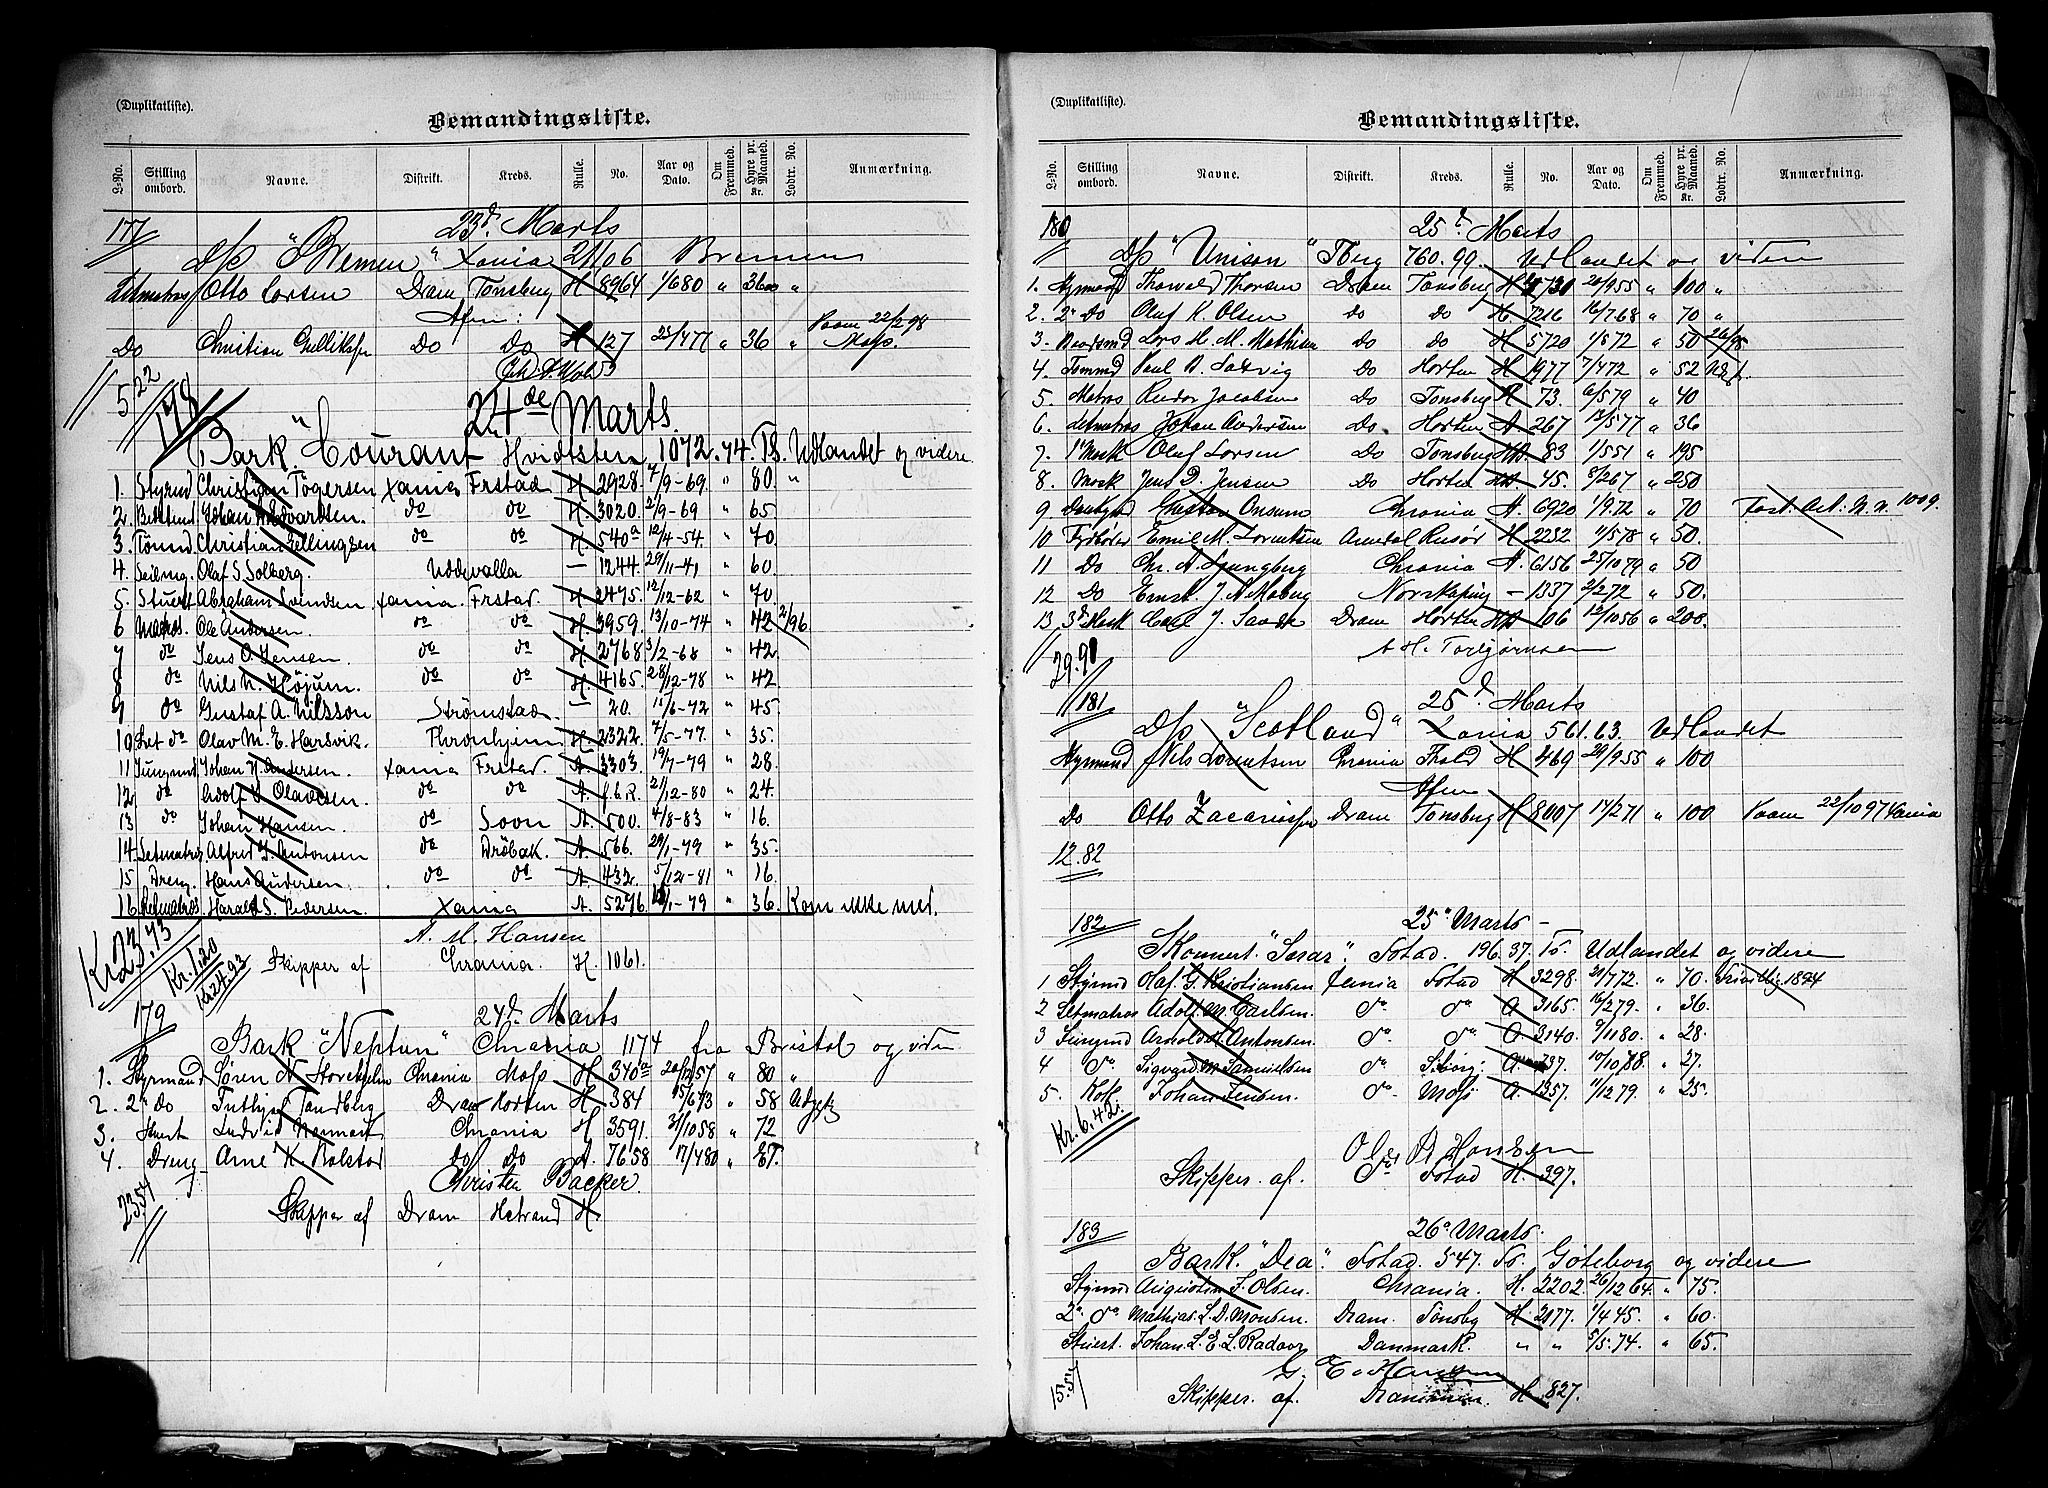 (Duplikatliste).
Bemandingsliste.
L-No. Stilling ombord. Navne. Distrikt. Kreds. Rulle. No. Aar og Dato. Om Fremmed. Hyre pr. Maaned. Kr. Lodtr. No. Anmærkning.
177 23d Marts
D/s "Bremen" Xania 21106 Bremen
Letmatros Otto Corsen Dram Tønsberg H 8964 1/6 80 " 36 00 "
Afm:
Do Christian Gullikssen Do Do H 127 25/4 77 " 36 " Paam 22/2 98 Moss.
522
178 24de Marts.
Bark "Courant" Hvidtsten 1072.74. Ts. Udlandet og videre
1. Styrmd Christian Tögersen Xania Frstad H. 2928 7/9-69. " 80. "
2. Bestmd Johan Edvardsen. do do H. 3020. 2/9-69 " 65
3. Tømmd Christian Gellingsen do do H. 540a 12/4-54. " 70.
4. Seilmg. Olaf S. Solberg. Uddevalla — 1244. 29/11-41 " 60.
5. Stuert Abraham Svendsen. Xania. Frstad. H. 2475. 12/12-62 " 70.
6 Matros. Ole Andersen. do do H. 3959. 13/10-74 " 42 2/96
7 do Jens O. Jensen. do do H. 2768 3/2-68 " 42.
8 do Nils N. Höjum. do do H. 4165. 28/12-78 " 42
9 do Gustaf A. Nilsson Strømstad — 20. 11/6-72 " 45.
10 Let do Olav M. E. Harsvik. Thronhjem H. 2322 7/5-77. " 35.
11 Jungmd Johan A. Andersen. Xania Frstad. A. 3303. 19/7-79 " 28.
12 do Adolf Olavesen. do do A. f.b.R. 21/12-80 " 24.
13 do Johan Hansen. do Soon A. 500. 4/8-83 " 16.
14 Letmatros Alfred J. Antonsen do Dröbak. A. 566. 29/1-79 " 35.
15 Dreng. Hans Andersen. do do A. 432. 5/12-81 " 16.
16 Letmatros Harald S. Pedersen. Xania A. 5276 /1-79 " 36. Kom ikke med.
Kr. 23.73
Kr. 1.20
Kr. 24.93
A. M. Hansen
Skipper af Chrania. H. 1061.
179 24d. Marts
Bark "Neptun" Chrania 1174 fra Bristol og viden
1. Styrmand Søren N. Chrania Moss H 340 20/2 57 " 80 "
2. 2" do Tandberg Dram Horten H 384 15/6 73 " 58
3. Ludvig Chrania H 3591. 3/10 58 " 72
4. Dreng Arne K. Rolstad do do A. 7658 17/4 80 " ET.
Christen Backer.
23.54
Skipper af Dram H.
(Duplikatliste).
Bemandingsliste.
L-No. Stilling ombord. Navne. Distrikt. Kreds. Rulle. No. Aar og Dato. Om Fremmed. Hyre pr. Maaned. Kr. Lodtr. No. Anmærkning.
180 25d. Marts
D/s "Unison" Tberg 760.99. Udlandet og viden
1. Styrmand Thorvald Thorsen Dram Tønsberg H 20/9 55 " 100 "
2. 2" Do Oluf K. Olsen do do H. 7216 16/7 68 " 70 "
3. Lars H. M. Mathisen do do H 5720 1/8 72 " 50
4. Tømmd Paul A. Do Horten H 1977 7/4 72 " 52
5. Matros Jacobsen Do Tønsberg A 73. 6/5 79 " 40
6. Letmatros Johan Andersen Do Horten A 267 13/5 77 " 36
7. 1" Mask Oluf Larsen Do Tønsberg 83 1/5 51 " 195
8. Mask Jens D. Jensen Do Horten 45. 8/2 67 " 250
9 Gustav Onsum Chrania A. 6920 1/9 72 " 70 Fost. Act. N. n. 1009.
10 Fyrbøder Emil M. Lorentsen Arendal Risør H 2252 11/5 78 " 50.
11 Do Chr. A. Ljungberg Chrania A. 6156 25/10 79 " 50
12 Do Ernst J. Norskøping – 1337 2/2 72 " 50.
13. 3" Mask Carl J. Dram Horten 106 12/10 56 " 200.
A. H. Torbjørnsen
29.90
181 25d Marts
D/s "Scotland" Xania 561.63. Udlandet
Styrmand Nils Lorentsen Chrania Thold H 469 29/9 55 " 100
Afm
Do Otto Zacariassen Dram Tønsberg H 8007 17/2 71 " 100 Paam 22/10 97 Xania
12.82
182 25" Marts –
Skonnert. "Sesar". Fstad. 196.37. Ts. Udlandet og videre
1 Styrmd Olaf G. Kristiansen Xania Fstad H 3298. 21/7 72. " 70. Frivillig 1894
2 Letmatros Adolf M. Carlsen. do do A. 3165. 16/2 79. " 36.
3 Jungmd Arnold Antonsen. do do A. 3140. 9/11 80. " 28.
4 do Sigvard M Samuelsen do Sborg: A. 737. 10/10 78 " 27.
5. Kok Johan Jensen. do Moss A. 1357. 1/12 79. " 25.
Kr. 6.42.
Ole B. Hansen
Skipper. af. do Fstad H. 397.
183 26" Marts.
Bark. "Dea". Fstad. 547. Ts. Göteborg og videre
Styrmd Augustin F. Olsen. Chrania. H. 2202. 26/12 64. " 75.
2" do Mathias. L. D. Monsen. Dram. Tönsbg H. 2077. 1/4 45. " 60.
Stuert. Johan. L. E. L. Danmark. " " 5/5. 74. " 65.
15.57
Skipper. af. Drammen. H. 827.